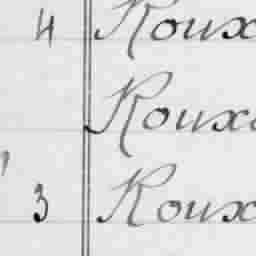 4 Roux
Roux
3 Roux